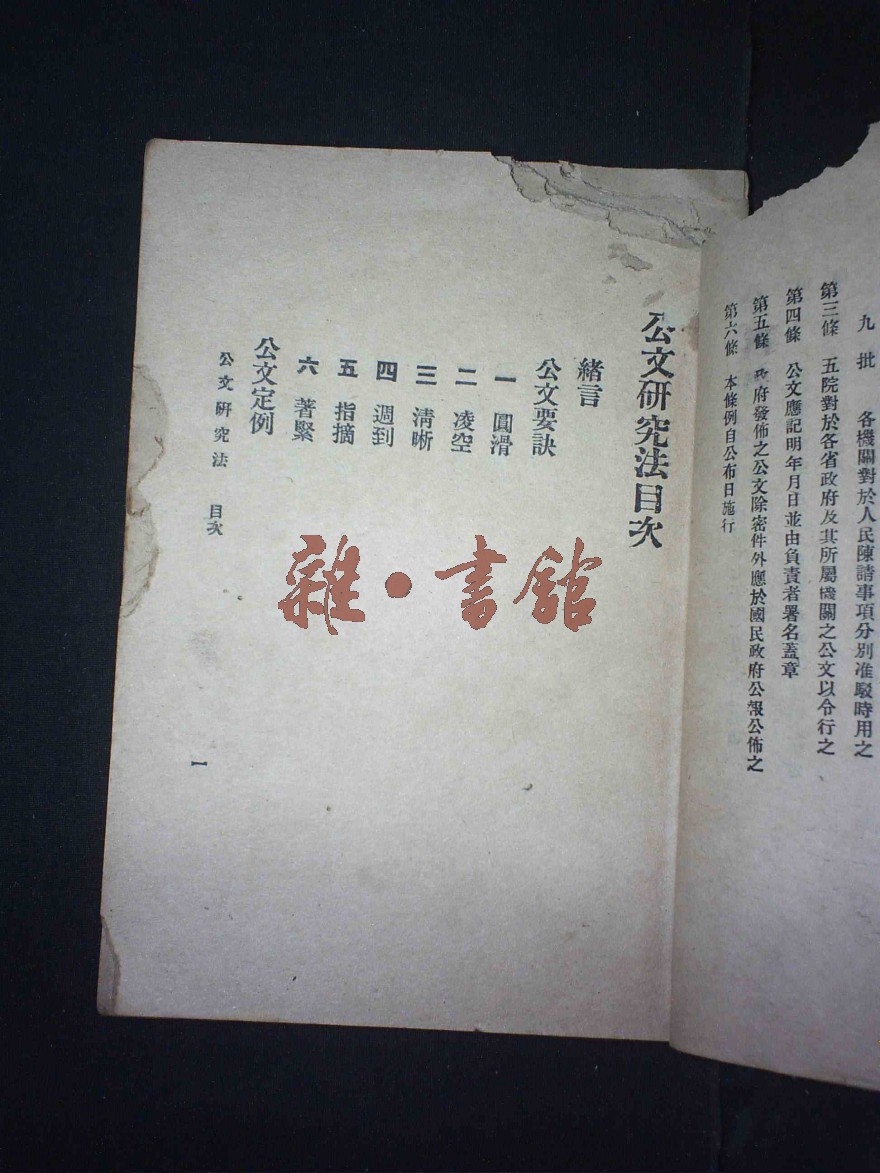 九 批 各機關對於人民陳請事項分別准駁時用之
第三條 五院對於各省政府及其所屬機關之公文以令行之
第四條 公文應記明年月日並由負責者署名蓋章
第五條 政府發佈之公文除密件外應於國民政府公報公佈之
第六條 本條例自公布日施行
公文研究法目次
緒言
公文要訣
一 圓滑
二 凌空
三 清晰
四 週到
五 指摘
六 著緊
公文定例
公文研究法 目次
一
雜·書館